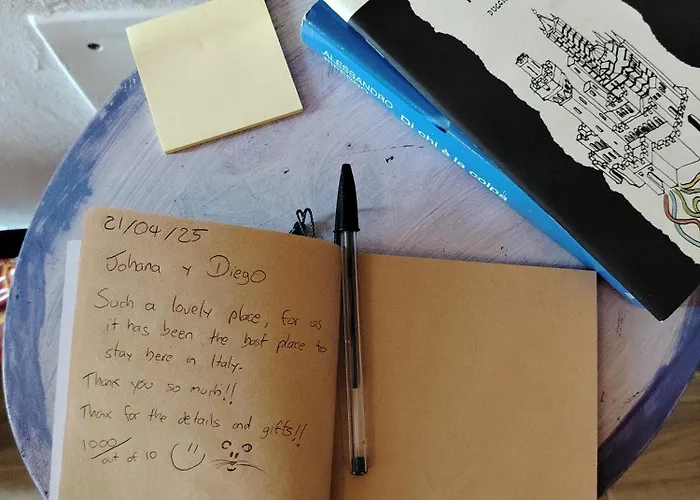 21/04/25
Johana y Diego
Such a lovely place, for us
it has been the best place to
stay here in Italy.
Thank you so much!!
Thank for the details and gifts!!
1000/
out of 10
ALESSANDRO
Di chi è la colpa